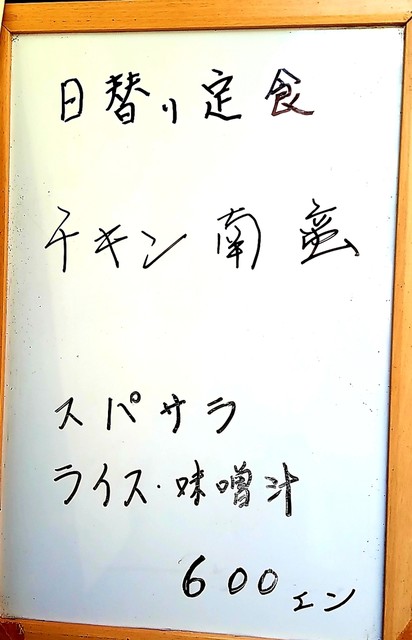 日替り定食
チキン南蛮
スパサラ
ライス・味噌汁
600エン